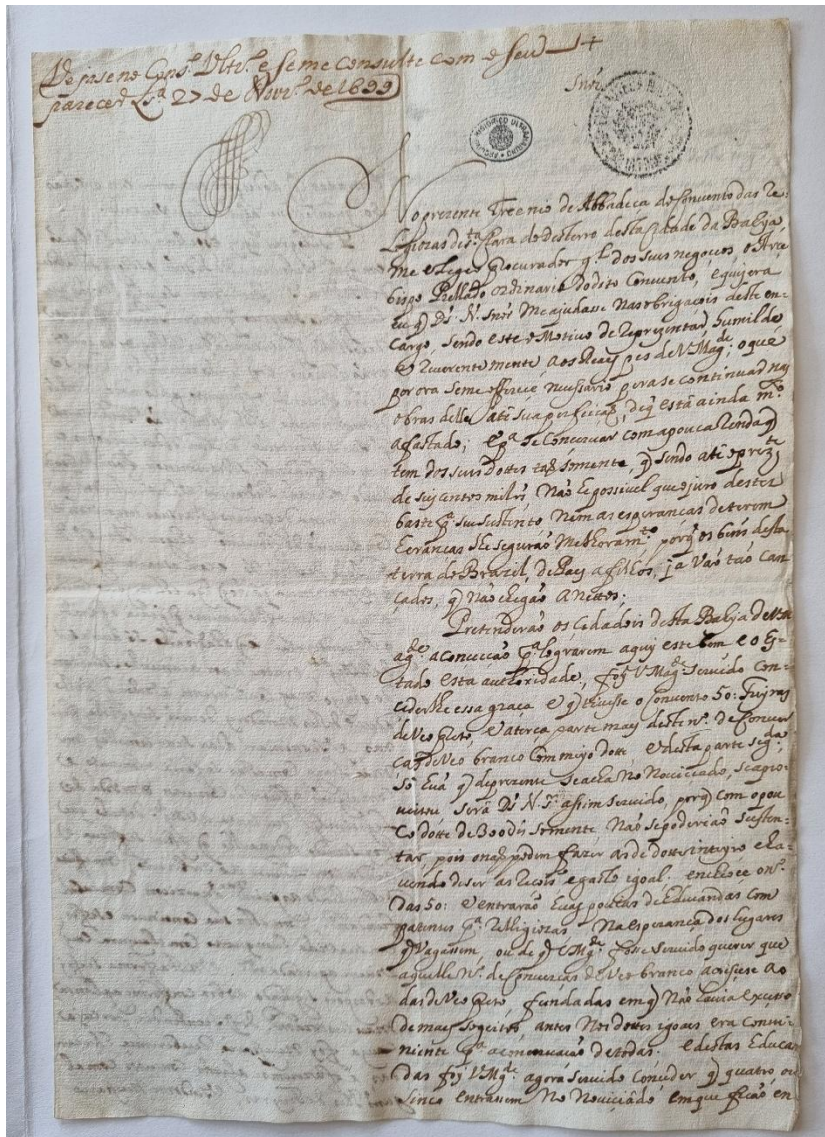 Veja se no Cons.º Ultr.º e se me consulte com o seu
parecer Lx.ª 27 de Novr.º de 1699
Snõr
HISTORICO ULTRAMARINO
No prezente Treenio de Abbadeça do Conuento das Re-
ligiozas de S.ta Clara do desterro desta Cidade da Bahya
me elegeo procurador g.l dos seus negocios, o Arce
bispo Prellado ordinario do dito Conuento, e quizera
eu q̃ Ds. N. Snõr me ajudasse nas obrigaçois deste en-
cargo, sendo este o motiuo de reprezentar, humilde
e reuerentemente, aos Reaes pes de V Mag.de, o que
por ora se me offerece necessario pera se continuar nas
obras delle, ate sua perfeiçaõ, de q̃ está ainda m.to
afastado; e p.ª se conseruar com a pouca renda q̃
tem dos seus dottes taõ somente, q̃ sendo ate o prez.te
de seyscentos mil rs. Não he possiuel que o juro destes
baste p.ª seu sustento nem as esperanças de terem
heranças lhe segurão melhoram.to, porq̃ os bẽns desta
terra do Brazil, de Pays a filhos, ja vão tão can
çados, q̃ não chegão a nettos;
Pretenderão os Cidadois desta Bahya de V M
ag.de a conceção p.ª lograrem aquy este bem e o Es-
tado esta authoridade, foy V Mag.de seruido con-
cederlhe essa graça e q̃ tiuesse o Conuento 50: freyras
de Veo preto, e a terça parte mays deste n.º de Conuer
ças de Veo branco com meyo dotte e desta parte seg.da
só huã q̃ de prezente se acha no Nouiciado, se apro-
ueitou será Ds N. Sr assim seruido, porq̃ com o pou
co dotte de 300U rs somente não se poderião susten-
tar, pois não podem fazer as de dotte inteyro e ha-
uendo de ser as reçois e gasto igoal: encheose o n.º
das 50: e entrarão huãs poucas de Educandas com
patentes p.ª Relligiozas na esperança dos lugares
q̃ vagassem, ou de q̃ V Mg.de fosse seruido querer que
aquelle N.º de Conuerças de Veo branco acreçese ao
das de Veo preto, fundadas em q̃ não hauia excesso
de mays sogeitos, antes nos dottes igoais era conue-
niente p.ª a comonicação de todas. e destas Educa
das foy V Mg.de agora seruido conceder q̃ quatro ou
sinco entrassem no Nouiciado em que ficão en